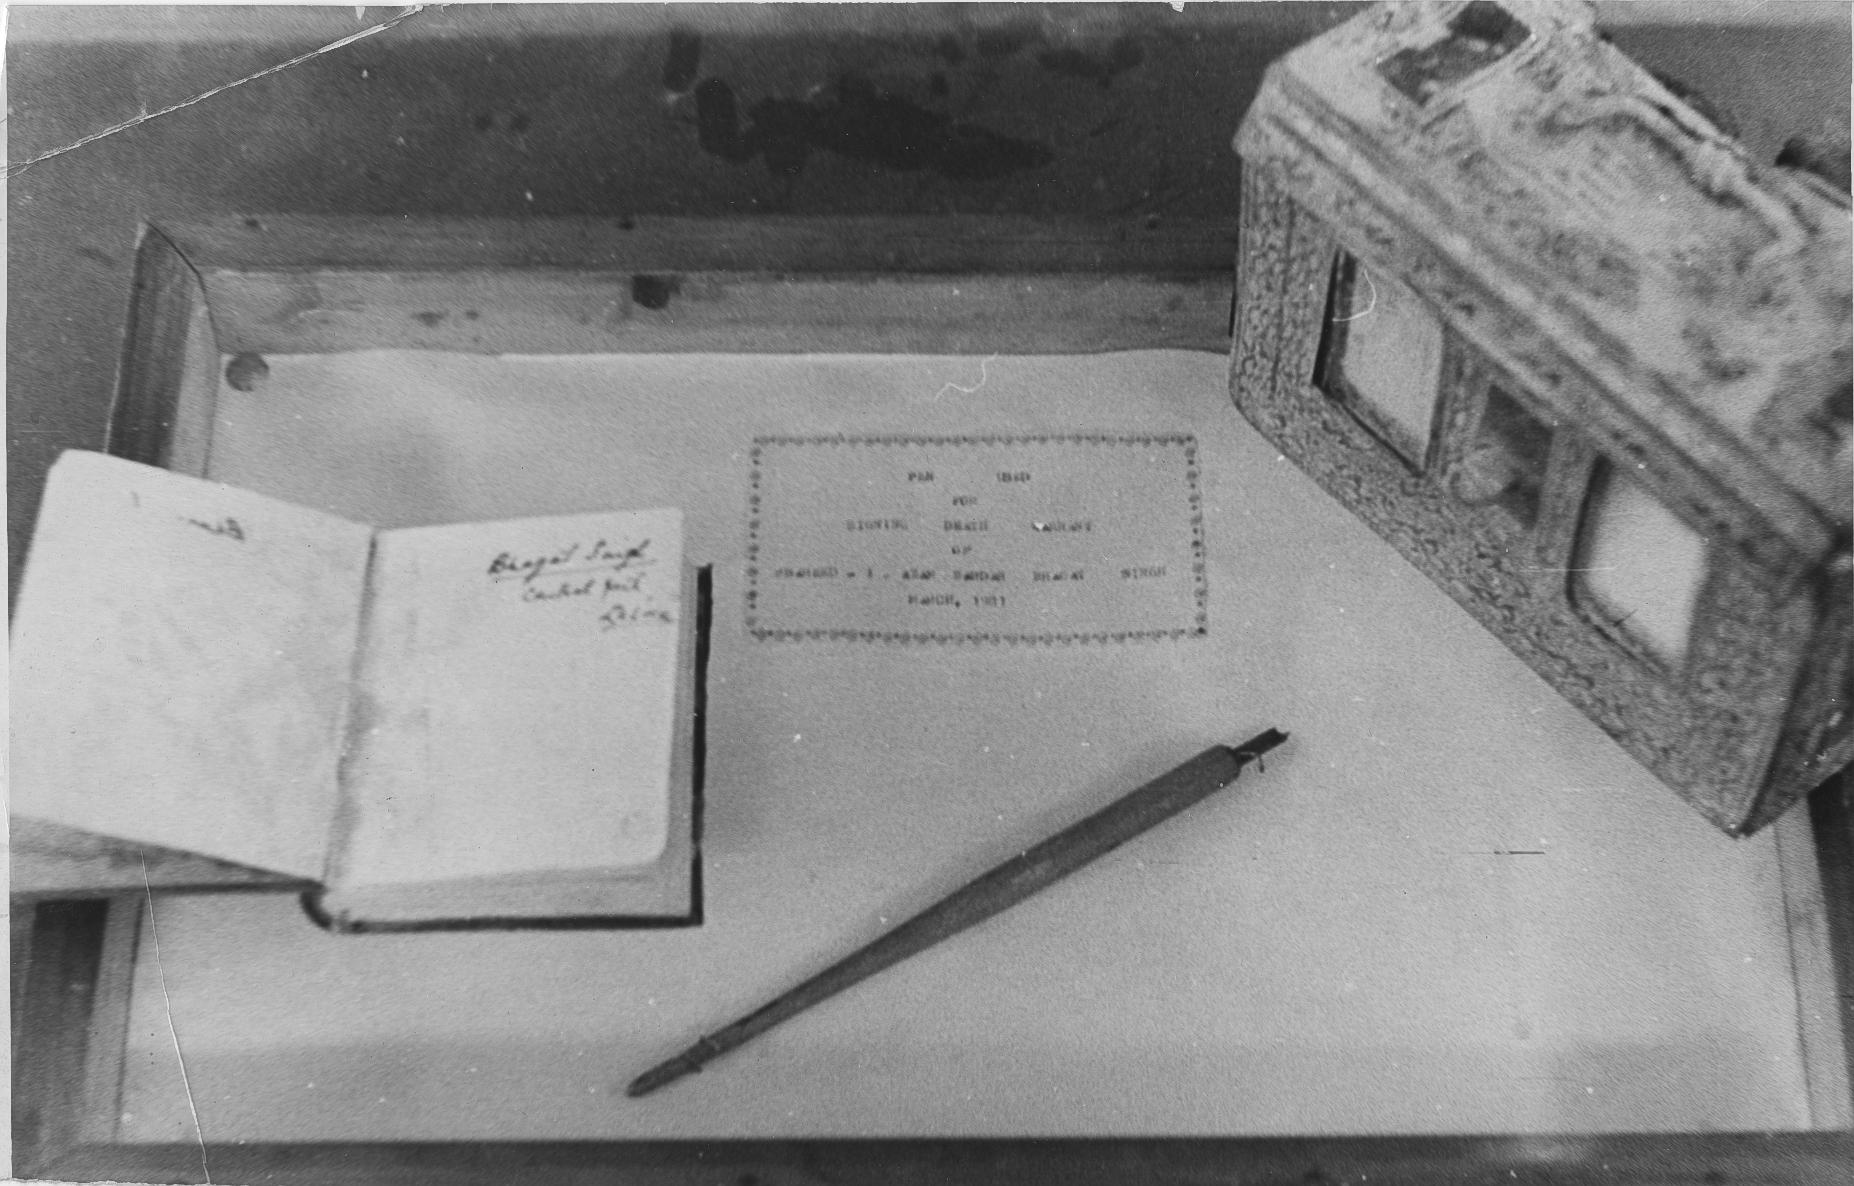 Bhagat Singh
Central Jail,
Lahore
PEN USED
FOR
SIGNING DEATH WARRANT
OF
SHAHEED - I - AZAM SARDAR BHAGAT SINGH
MARCH, 1931